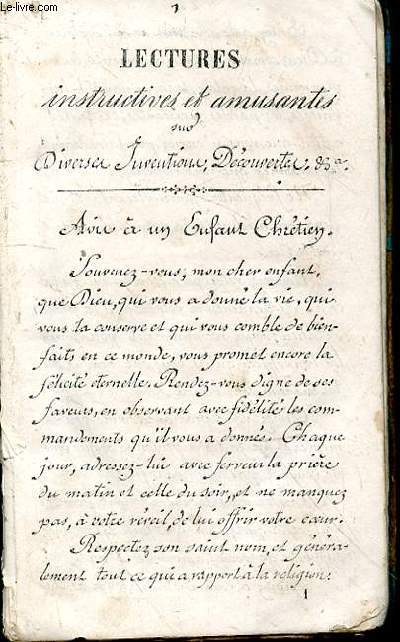 Le-livre.com
LECTURES
instructives et amusantes
sur
Diverses Inventions, Découvertes, &a.
Avis à un Enfant Chrétien.
Souvenez-vous, mon cher enfant,
que Dieu, qui vous a donné la vie, qui
vous la conserve et qui vous comble de bien-
faits en ce monde, vous promet encore la
félicité eternelle. Rendez-vous digne de ses
faveurs, en observant avec fidélité les com-
mandements qu'il vous a donnés. Chaque
jour, adressez-lui avec ferveur la prière
du matin et celle du soir, et ne manquez
pas, à votre réveil, de lui offrir votre cœur.
Respectez son saint nom, et généra-
lement tout ce qui a rapport à la religion:
1